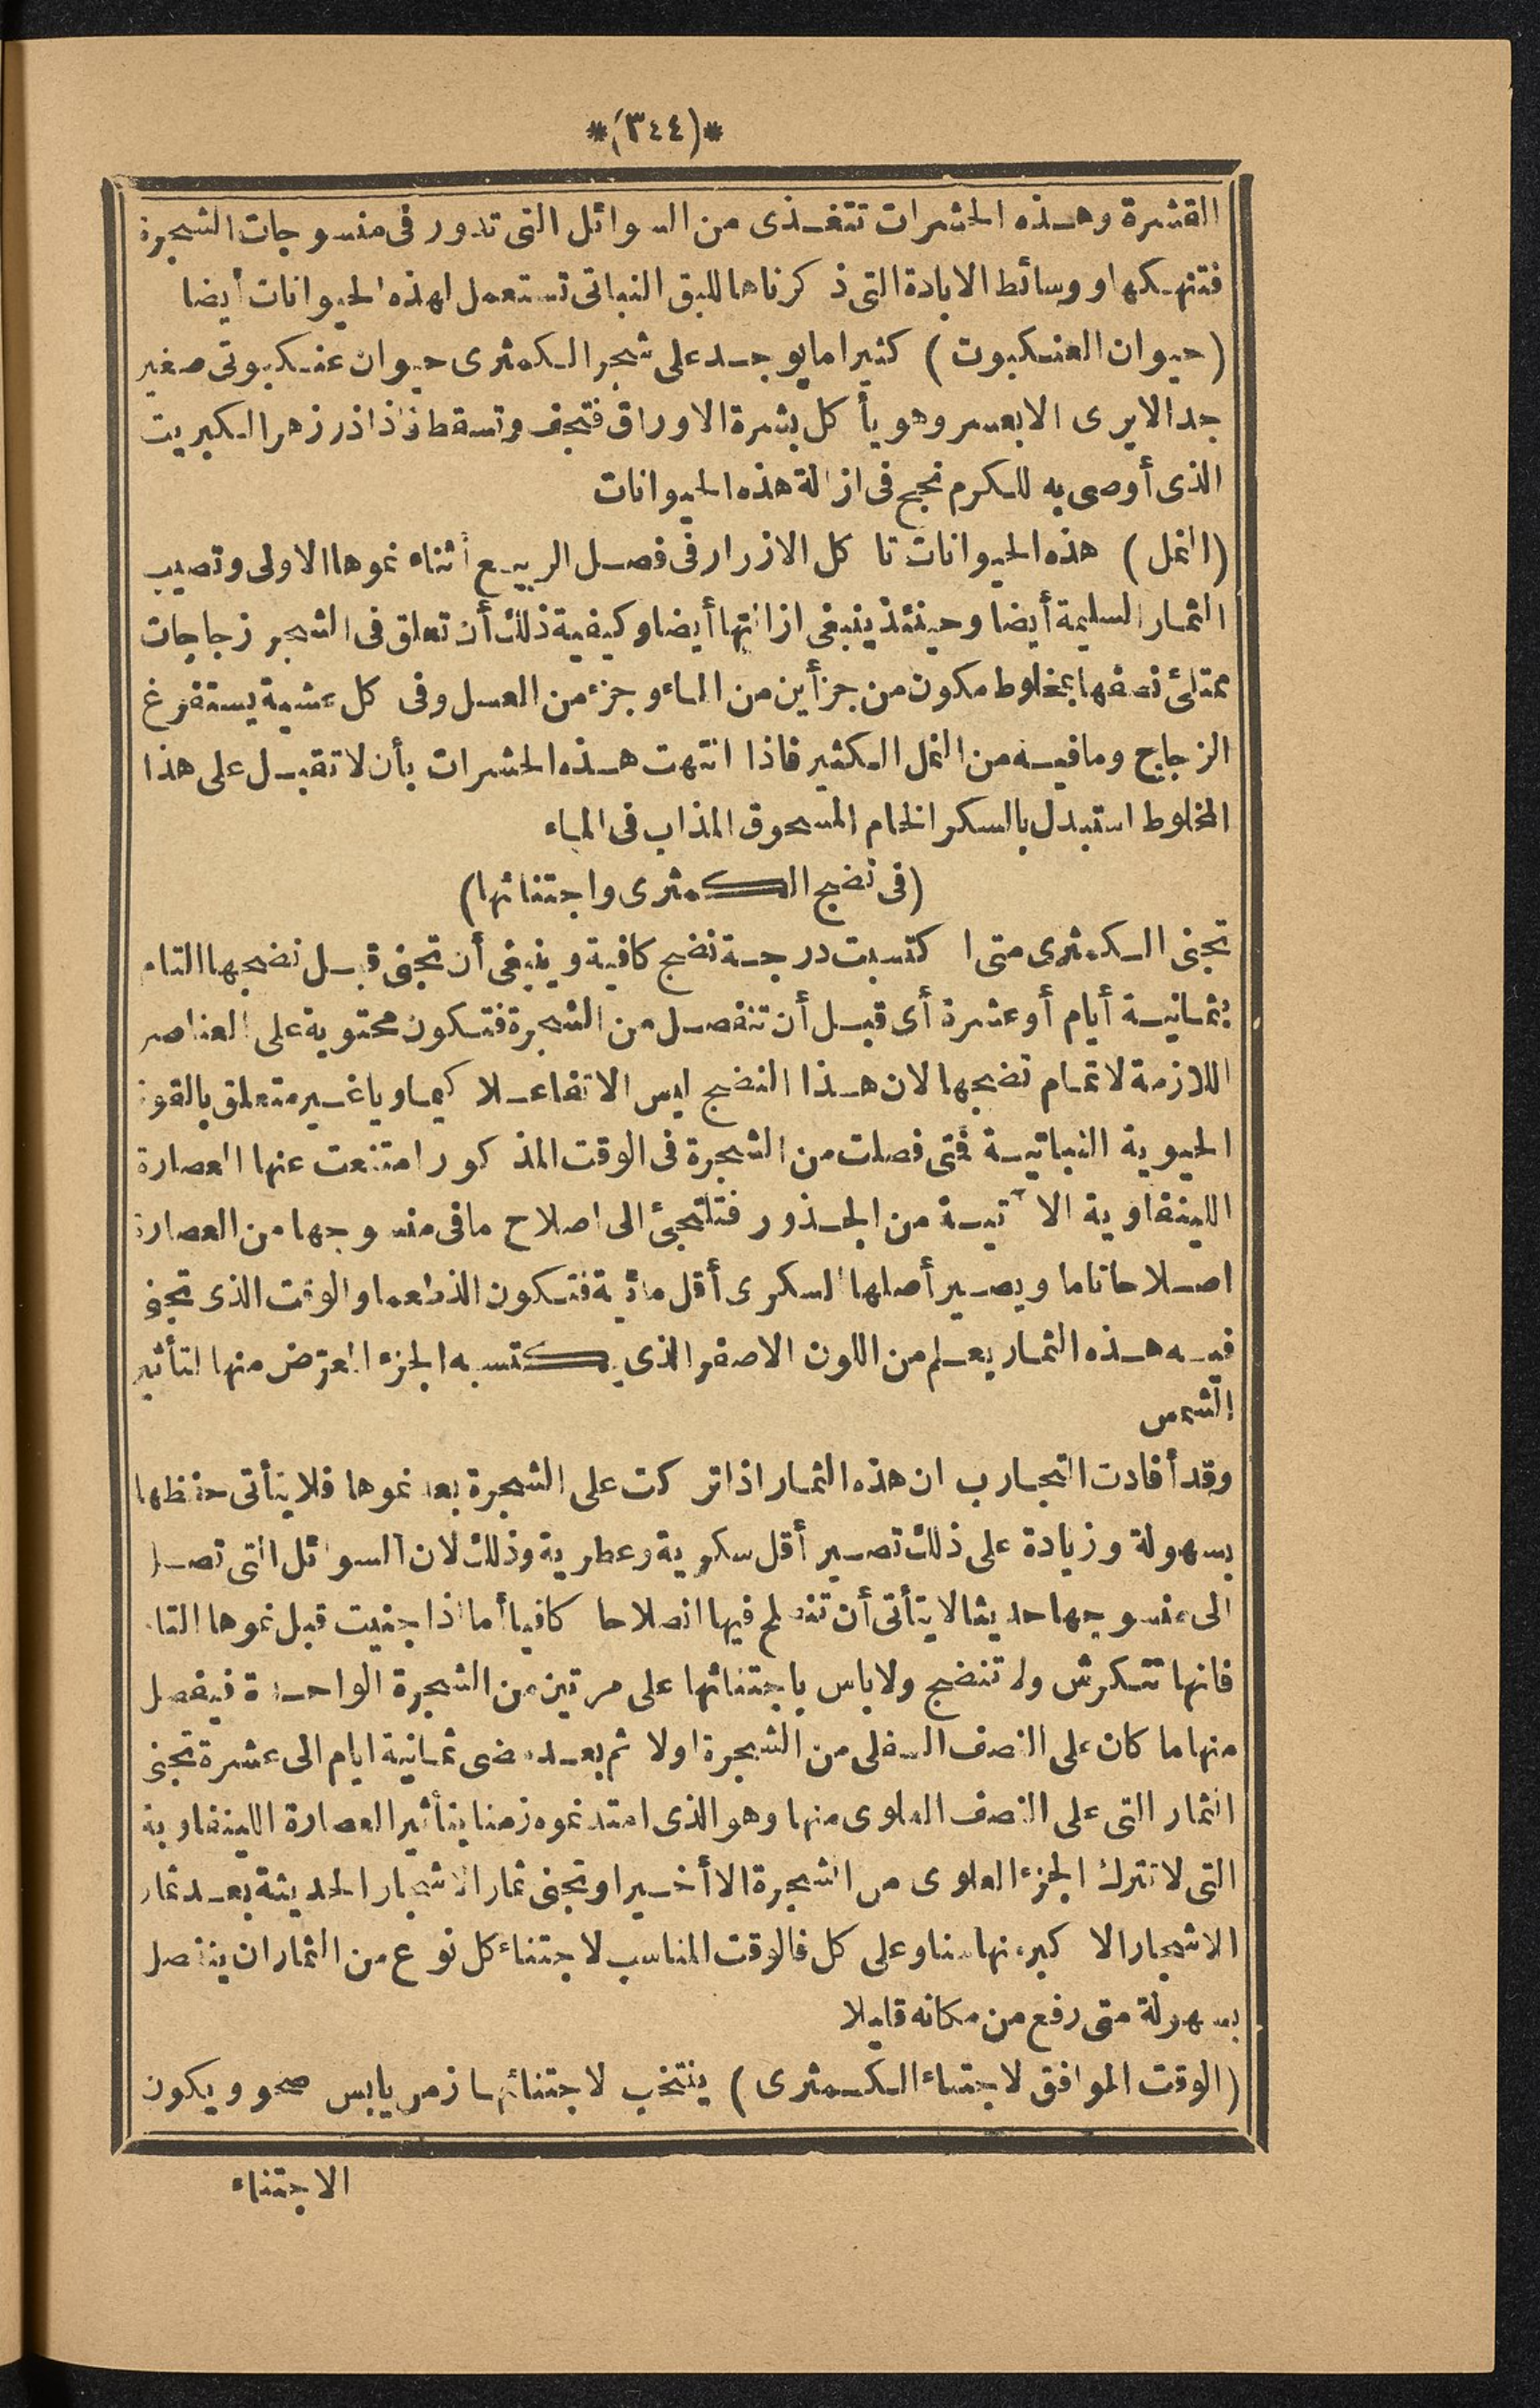 *(٣٤٤)*
القشرة وهذه الحشرات تتغذى من السوائل التى تدور فى منسوجات الشجرة
فتنهكها ووسائط الابادة التى ذكرناها للبق النباتى تستعمل لهذه الحيوانات أيضا
(حيوان العنكبوت) كثيرا ما يوجد على شجر الكمثرى حيوان عنكبوتى صغير
جدا لا يرى الا بعسر وهو يأكل بشرة الاوراق فتجف وتسقط فاذا ذر زهر الكبريت
الذى أوصى به للكرم نجح فى ازالة هذه الحيوانات
(النمل) هذه الحيوانات تاكل الازرار فى فصل الربيع أثناء نموها الاولى وتصيب
الثمار السليمة أيضا وحينئذ ينبغى ازالتها أيضا وكيفية ذلك أن تعلق فى الشجر زجاجات
ممتلئ نصفها بمخلوط مكون من جزأين من الماء وجزء من العسل وفى كل عشية يستفرغ
الزجاج وما فيه من النمل الكثير فاذا انتهت هذه الحشرات بأن لا تقبل على هذا
المخلوط استبدل بالسكر الخام المسحوق المذاب فى الماء
(فى نضج الكمثرى واجتنائها)
تجنى الكمثرى متى اكتسبت درجة نضج كافية وينبغى أن تجنى قبل نضجها التام
بثمانية أيام أو عشرة أى قبل أن تنفصل من الشجرة فتكون محتوية على العناصر
اللازمة لاتمام نضجها لان هذا النضج ليس الا تفاعلا كيماويا غير متعلق بالقوة
الحيوية النباتية فمتى فصلت من الشجرة فى الوقت المذكور امتنعت عنها العصارة
اللينفاوية الآتية من الجذور فتلتجئ الى اصلاح ما فى منسوجها من العصارة
اصلاحا تاما ويصير أصلها السكرى أقل مائية فتكون الذ طعما والوقت الذى تجنى
فيه هذه الثمار يعلم من اللون الاصفر الذى يكتسبه الجزء المعرّض منها لتأثير
الشمس
وقد أفادت التجارب ان هذه الثمار اذا تركت على الشجرة بعد نموها فلا يتأتى حفظها
بسهولة وزيادة على ذلك تصير أقل سكرية وعطرية وذلك لان السوائل التى تصل
الى منسوجها حديثا لا يتأتى أن تنصلح فيها انصلاحا كافيا أما اذا جنيت قبل نموها التام
فانها تتكرش ولا تنضج ولا باس باجتنائها على مرتين من الشجرة الواحدة فيفصل
منها ما كان على النصف السفلى من الشجرة اولا ثم بعد مضى ثمانية ايام الى عشرة تجنى
الثمار التى على النصف العلوى منها وهو الذى امتد نموه زمنا بتأثير العصارة اللينفاوية
التى لا تترك الجزء العلوى من الشجرة الا أخيرا وتجنى ثمار الاشجار الحديثة بعد ثمار
الاشجار الاكبر منها سنا وعلى كل فالوقت المناسب لاجتناء كل نوع من الثمار ان ينفصل
بسهولة متى رفع من مكانه قليلا
(الوقت الموافق لاجتناء الكمثرى) ينتخب لاجتنائها زمن يابس صحو ويكون
الاجتناء